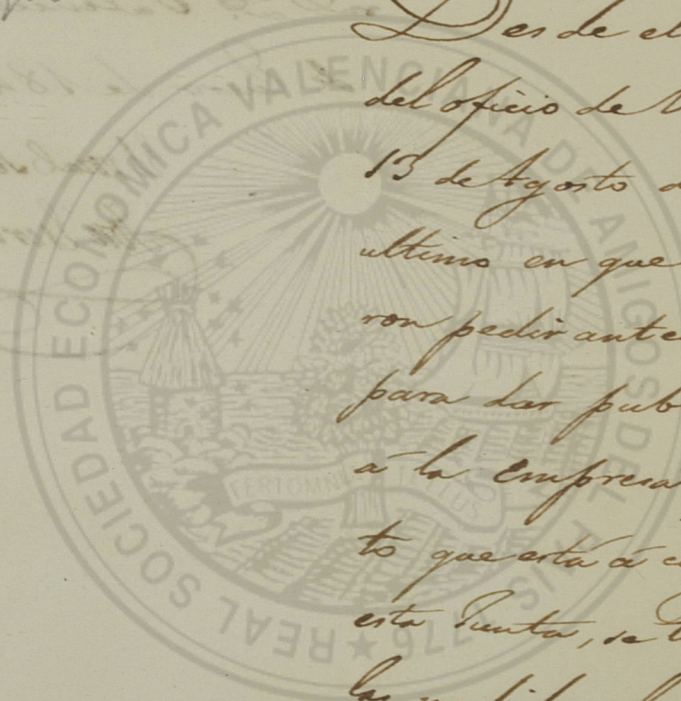 Desde el
del oficio de V
13 de Agosto
ultimo en que
ron pedir ante
para dar pub
á la empresa
to que está á c
esta Junta, se
REAL SOCIEDAD ECONOMICA VALENCIANA DE AMIGOS DEL PAIS ★ 1776
FERT OMNIA TELLUS